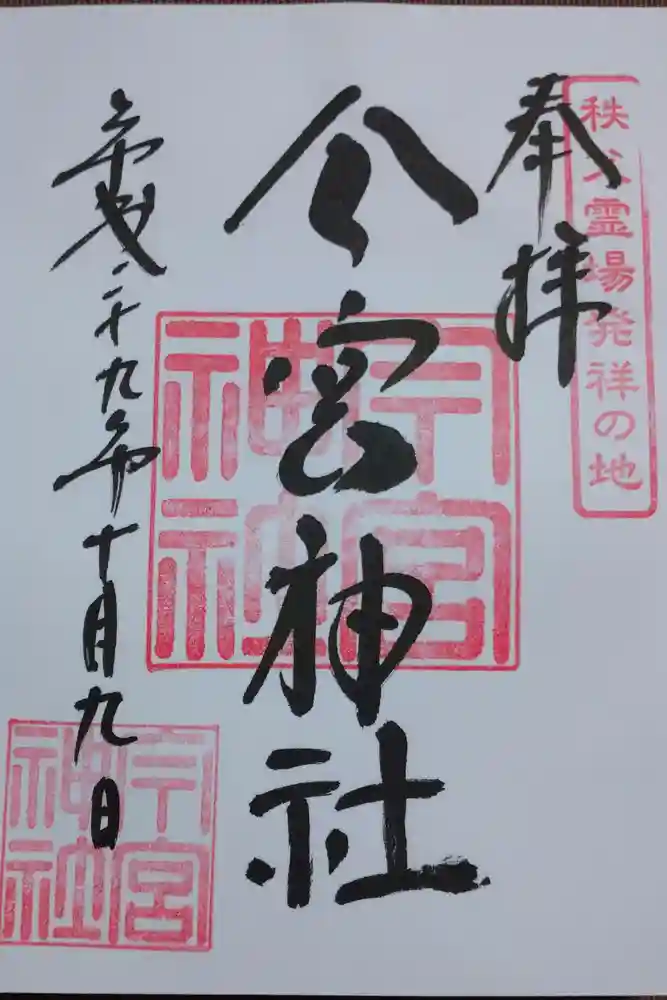 秩父霊場発祥の地
奉拝
今宮神社
今宮
神社
平成二十九年十月九日
今宮
神社